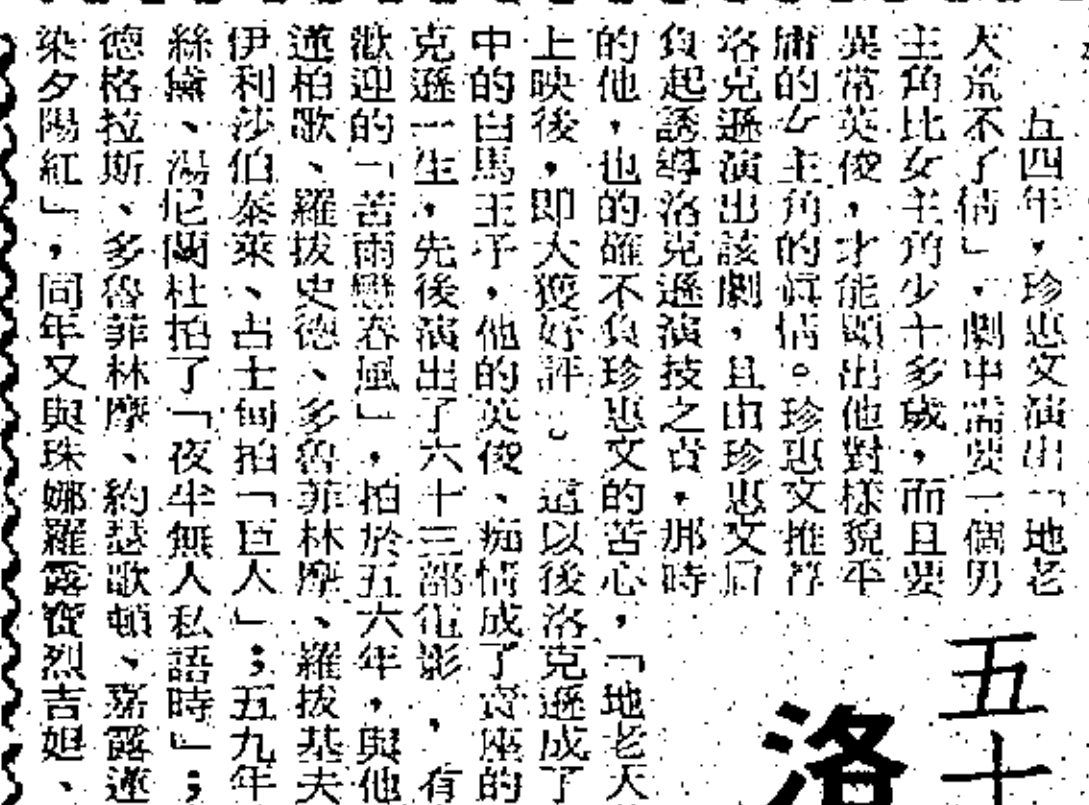 五四年，珍惠文演出「地老
天荒不了情」，劇中需要一個男
主角比女主角少十多歲，而且要
異常英俊，才能顯出他對樣貌平
庸的女主角的眞情。珍惠文推荐
洛克遜演出該劇，且由珍惠文肩
負起誘導洛克遜演技之責，那時
的他，也的確不負珍惠文的苦心，「地老天
上映後，即大獲好評。這以後洛克遜成了
中的白馬王子，他的英俊、痴情成了賣座的
克遜一生，先後演出了六十三部電影，有
歡迎的「苦雨戀春風」，拍於五六年，與他
連柏歌、羅拔史德、多魯菲林摩、羅拔基夫
伊利沙伯泰萊、占士甸拍「巨人」；五九年
絲黛、湯尼蘭杜拍了「夜半無人私語時」；
德格拉斯、多魯菲林摩、約瑟歌頓、嘉露連
染夕陽紅」，同年又與珠娜羅露寶烈吉妲、
五十
洛